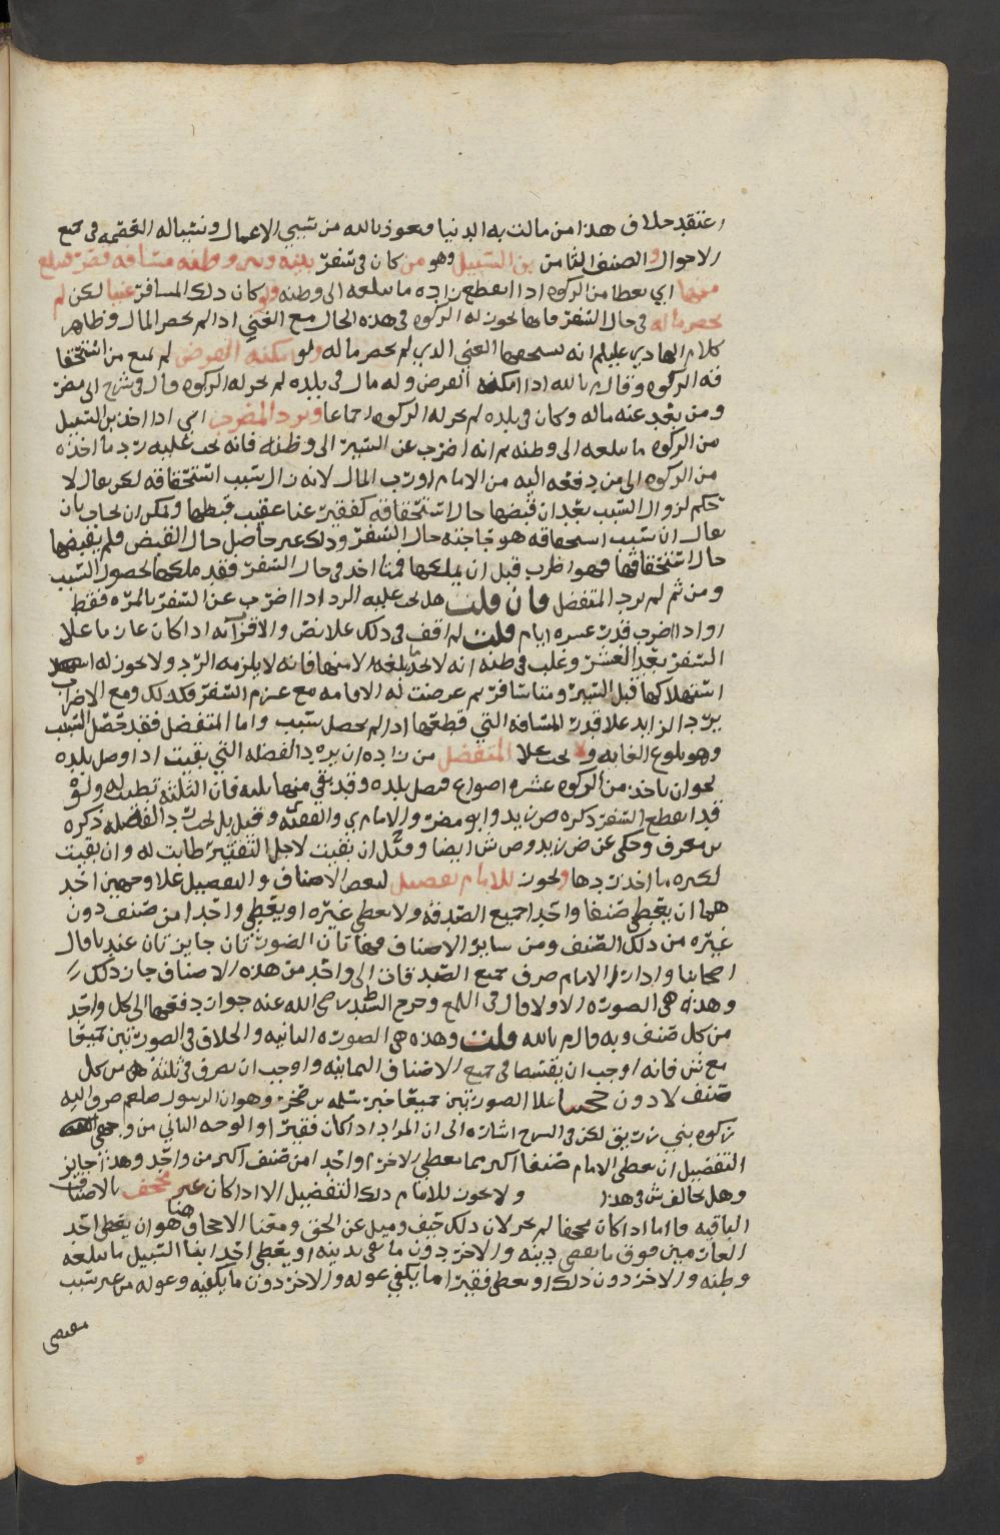 اعتقد خلاف هذا من مالت به الدنيا ونعوذ بالله من سيي الاعمال ونساله العصمه في جميع
الاحوال و الصنف الثامن بن السبيل وهو من كان في سفر بينه وبين وطنه مسافه قصر فيبلغ
منها اي يعطا من الزكوه اذا انقطع زاده ما يبلغه الى وطنه ولو كان ذلك المسافر غنيا لكن لم
يحضر ماله في حال السفر فانها تجوز له الزكوه في هذه الحال مع الغني اذا لم يحضر المال وظاهر
كلام الهادي عليلم انه يستحقها الغني الذي لم يحضر ماله ولو امكنه القرض لم يمنع من استحقا
قه الزكوه وقال م بالله اذا امكنه القرض وله مال في بلده لم تحل له الزكوه قال في شرح ابي مضر
ومن بعد عنه ماله وكان في بلده لم تحل له الزكوه اجماعا ويرد المضرب اي اذا اخذ بن السبيل
من الزكوه ما يبلغه الى وطنه ثم انه اضرب عن السير الى وطنه فانه يجب عليه رد ما اخذه
من الزكوه الى من دفعه اليه من الامام او رب المال لانه زال سبب استحقاقه لكن يقال لا
حكم لزوال السبب بعد ان قبضها حال استحقاقه كفقير غنا عقيب قبضها ويمكن ان يجاب بان
يقال ان سبب استحقاقه هو حاجته حال السفر وذلك غير حاصل حال القبض فلم يقبضها
حال استحقاقها فهو اضرب قبل ان يملكها فمتا اخذ في حال السفر فقد ملكها لحصول السبب
ومن ثم لم يرد المتفضل فان قلت هل يجب عليه الرد اذا اضرب عن السفر بالمره فقط
او اذا اضرب قدر عشره ايام قلت لم اقف في ذلك علا نص والاقرب انه اذا كان عازما علا
السفر بعد العشر وغلب في ظنه انه لا يجد بلغه الا منها فانه لا يلزمه الرد ولا يجوز له
استهلاكها قبل السير ومتا سافر ثم عرضت له الاقامه مع عزم السفر فكذلك ومع الاضراب
يرد الزايد علا قدر المسافه التي قطعها اذا لم يحصل سبب واما المتفضل فقد حصل السبب
وهو بلوغ الغايه ولا يجب علا المتفضل من زاده ان يرد الفضله التي بقيت اذا وصل بلده
نحو ان ياخذ من الزكوه عشره اصواع فيصل بلده وقد بقي منها ثلثه فان الثلثه تطيب له ولو
قد انقطع السفر ذكره ص زيد وابو مضر والامام ي والفقيه وقيل بل يجب رد الفضله ذكره
بن معرف وحكي عن ض زيد وص ش ايضا وقيل ان بقيت لاجل التقتير طابت له وان بقيت
لكثره ما اخذ ردها ويجوز للامام تفضيل لبعض الاصناف والتفضيل علا وجهين احد
هما ان يعطي صنفا واحدا جميع الصدقه ولا يعطي غيره او يعطي واحدا من صنف دون
غيره من ذلك الصنف ومن ساير الاصناف فهاتان الصورتان جايزتان عندنا قال
اصحابنا واذا راى الامام صرف جميع الصدقات الى واحد من هذه الاصناف جاز ذلك
وهذه هي الصوره الاولا قال في اللمع وخرج السيد ط رضي الله عنه جواز دفعها الى كل واحد
من كل صنف وبه قال م بالله قلت وهذه هي الصوره الثانيه والخلاف في الصورتين جميعا
مع ش فانه اوجب ان يقسمها في جميع الاصناف الثمانيه واوجب ان يصرف في ثلثه من كل
صنف لا دون حجتنا علا الصورتين جميعا خبر سلمه بن صخر وهو ان الرسول صلعم صرف اليه
زكوه بني زريق لكن في الشرح اشاره الى ان المراد اذا كان فقيرا والوجه الثاني من وجهي
التفضيل ان يعطي الامام صنفا اكثر مما يعطي الاخر او واحدا من صنف اكثر من واحد وهذا جايز
وهل يخالف ش في هذا ولا يجوز للامام ذلك التفضيل الا اذا كان غير مجحف بالاصناف
الباقيه فاما اذا كان مجحفا لم يجز لان ذلك حيف وميل عن الحق ومعنا الاجحاف هنا هو ان يعطي احد
الغارمين فوق ما يقضي دينه والاخر دون ما يفي بدينه او يعطي احد ابنا السبيل ما يبلغه
وطنه والاخر دون ذلك او يعطي فقيرا ما يكفي عوله والاخر دون ما يكفيه وعوله من غير سبب
مقتضي